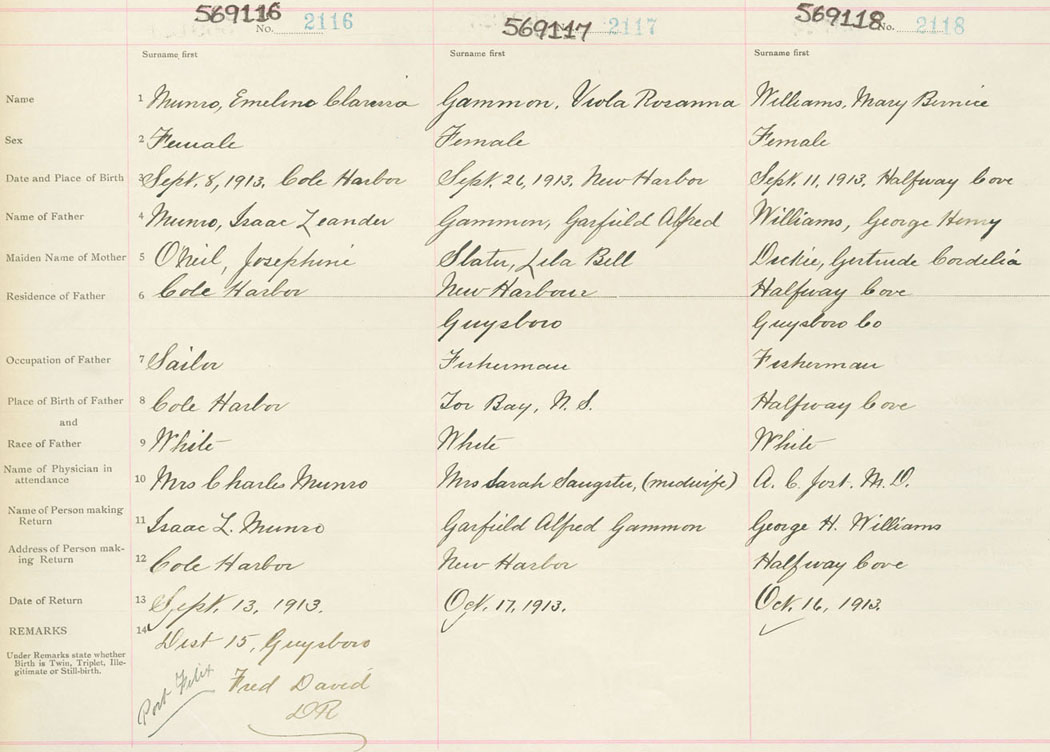 569116 No. 2116 569117 No. 2117 569118 No. 2118
Surname first Surname first Surname first
Name 1 Munro, Emeline Clarissa Gammon, Viola Rosanna Williams, Mary Bernice
Sex 2 Female Female Female
Date and Place of Birth 3 Sept. 8, 1913. Cole Harbor Sept. 26, 1913. New Harbor Sept. 11, 1913. Halfway Cove
Name of Father 4 Munro, Isaac Leander Gammon, Garfield Alfred Williams, George Henry
Maiden Name of Mother 5 O'Neil, Josephine Slater, Lila Bell Dickie, Gertrude Cordelia
Residence of Father 6 Cole Harbor New Harbour Halfway Cove
Guysboro Guysboro Co
Occupation of Father 7 Sailor Fisherman Fisherman
Place of Birth of Father 8 Cole Harbor Tor Bay, N. S. Halfway Cove
and
Race of Father 9 White White White
Name of Physician in
attendance 10 Mrs Charles Munro Mrs Sarah Sangster, (midwife) A. C. Jost. M. D.
Name of Person making
Return 11 Isaac L. Munro Garfield Alfred Gammon George H. Williams
Address of Person mak-
ing Return 12 Cole Harbor New Harbor Halfway Cove
Date of Return 13 Sept. 13, 1913. Oct. 17, 1913. Oct. 16, 1913.
REMARKS 14 Dist 15, Guysboro
Under Remarks state whether
Birth is Twin, Triplet, Ille-
gitimate or Still-birth.
Port Felix Fred David
DR